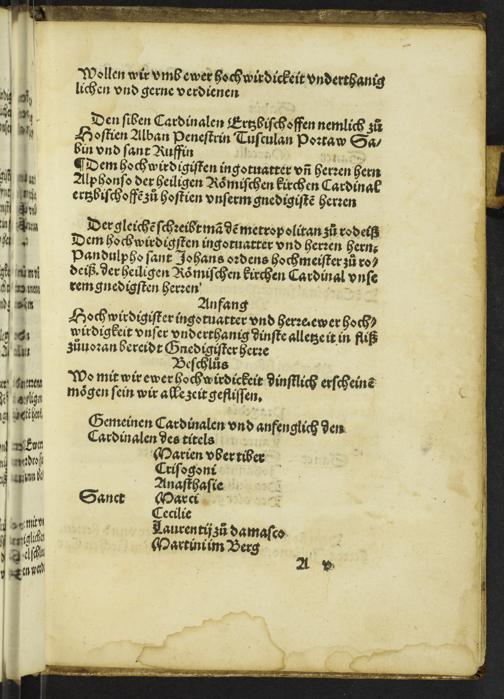 Wollen wir vmb ewer hochwirdickeit vnderthanig
lichen vnd gerne verdienen
Den siben Cardinalen Ertzbischoffen nemlich zů
Hostien Alban Penestrin Tusculan Portaw Sa⸗
bin vnd sant Ruffin
¶Dem hochwirdigisten ingotuatter vn̄ herren hern
Alphonso der heiligen Römischen kirchen Cardinal
ertzbischoffē zů hostien vnserm gnedigistē herren
Der gleichē schreibt mā dē metropolitan zů rodeiß
Dem hochwirdigsten ingotuatter vnd herren hern.
Pandulpho sant Johans ordens hochmeister zů ro⸗
deiß. der heiligen Römischen kirchen Cardinal vnse
rem gnedigsten herren
Anfang
Hochwirdigister ingotuatter vnd herre. ewer hoch⸗
wirdigkeit vnser vnderthanig dinste alletzeit in fliß
zůuoran bereidt Gnedigister herre
Beschlůs
Wo mit wir ewer hochwirdickeit dinstlich erscheinē
mögen sein wir alle zeit geflissen.
Gemeinen Cardinalen vnd anfenglich den
Cardinalen des titels
Marien vber tiber
Crisogoni
Anasthasie
Sanct Marci
Cecilie
Laurentij zů damasco
Martini im Berg
A v